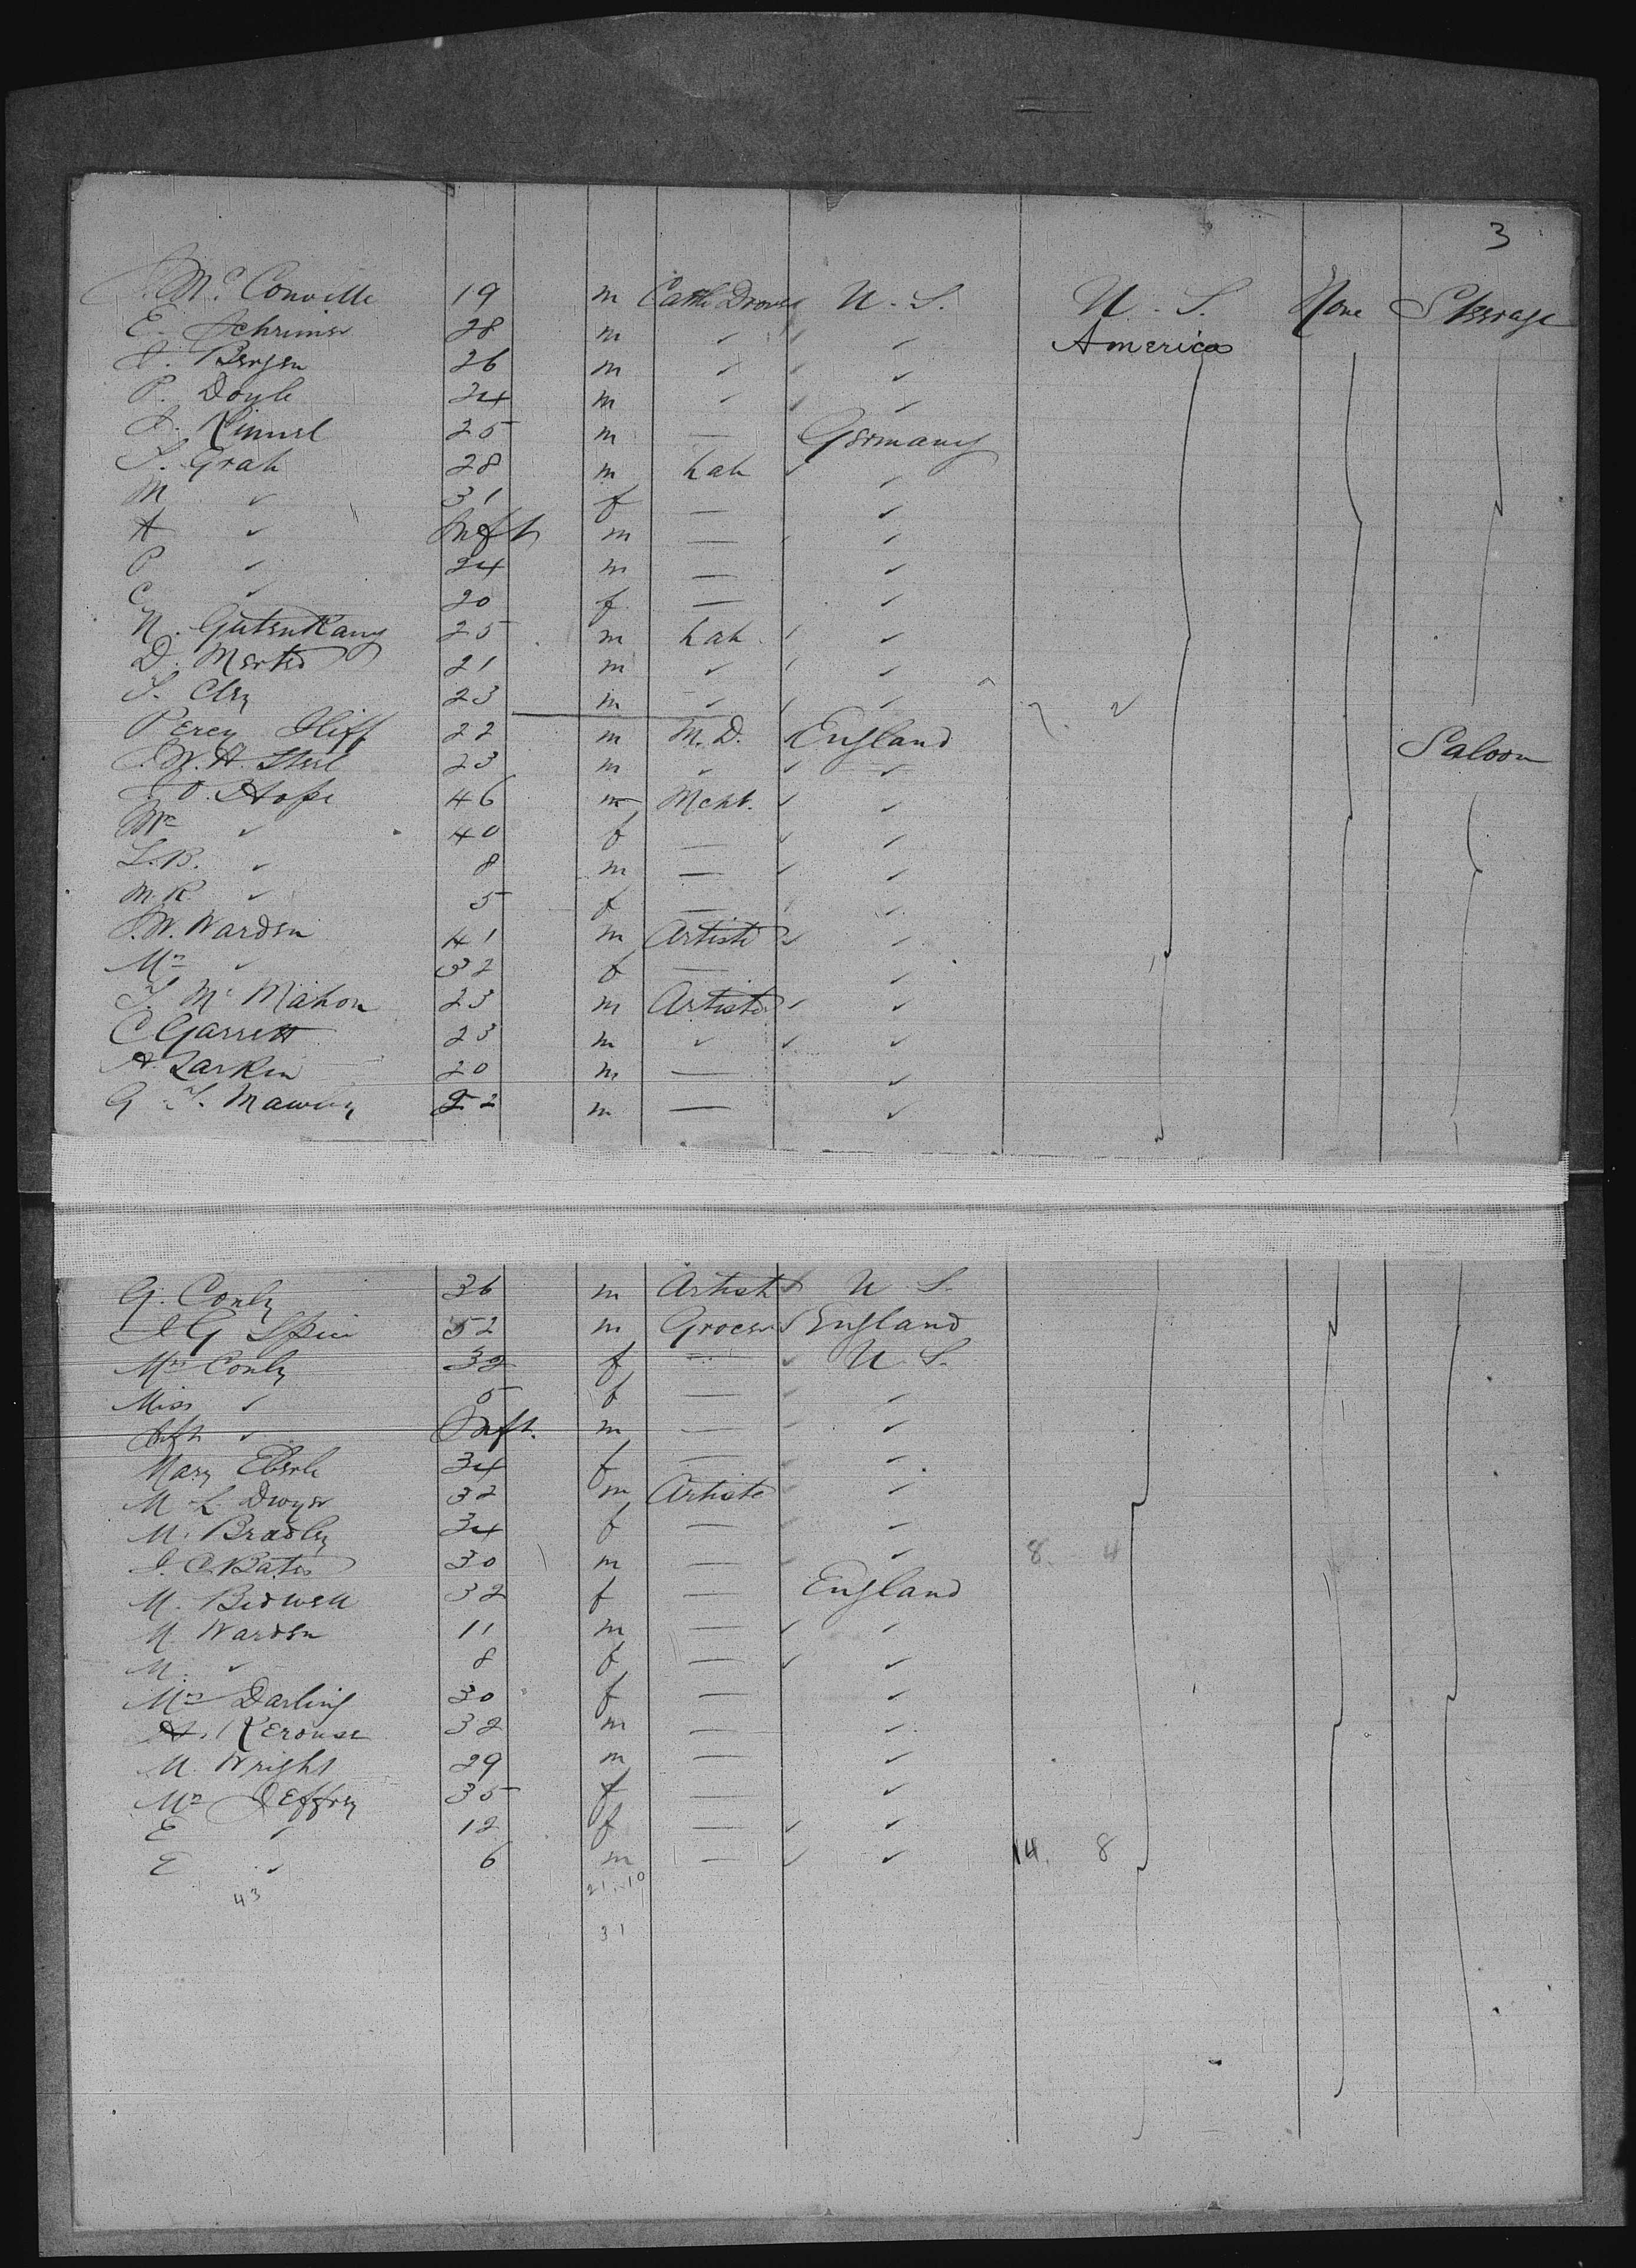 3
J. McConville 19 m Cattle Drover U.S. U.S. None Steerage
E. Schrimer 28 m ✓ ✓ ✓ America
J. Bergen 26 m ✓ ✓ ✓
P. Doyle 24 m ✓ ✓ ✓
J. Kimmel 25 m — Germany
J. Grah 28 m Lab ✓ ✓
M ✓ 31 f — ✓
A ✓ Infh m — ✓
P ✓ 24 m — ✓
C ✓ 20 f — ✓
N. 25 m Lab ✓ ✓
D. Mertes 21 m ✓ ✓ ✓
J. 23 m ✓ ✓ ✓
Percy Iliff 22 m M.D. England Saloon
J.W.H. Steel 23 m ✓ ✓ ✓
J.O. Hope 46 m Mcht. ✓ ✓
Mrs ✓ 40 f — ✓ ✓
L.B. ✓ 8 m — ✓ ✓
M.R. ✓ 5 f — ✓ ✓
J.W. Warden 41 m Artiste ✓ ✓
Mrs ✓ 32 f — ✓
J. McMahon 23 m Artiste ✓ ✓
C Garrett 23 m ✓ ✓ ✓
A. Larkin 20 m — ✓
G m — ✓
G. Conly 36 m Artist ✓ U S.
J G Spice 52 m Grocer ✓ England
Mrs Conly 32 f — ✓ U.S.
Miss ✓ 5 f — ✓ ✓
Infh ✓ Infh. m — ✓ ✓
Mary Eberle 34 f — ✓ ✓
M. L. Dwyer 32 m Artiste ✓ ✓
M. Bradley 34 f — ✓ ✓
J. C. Bates 30 m — ✓ ✓ 8. 4
M. Bidwell 32 f — England
M. Warden 11 m — ✓ ✓
M. ✓ 8 f — ✓ ✓
Mrs Darling 30 f — ✓
A. Kerouse 32 m — ✓
M. Wright 29 m — ✓
Mrs Jeffrey 35 f — ✓
E ✓ 12 f — ✓ ✓
E ✓ 6 m — ✓ ✓ 14. 8
43 21.10
31